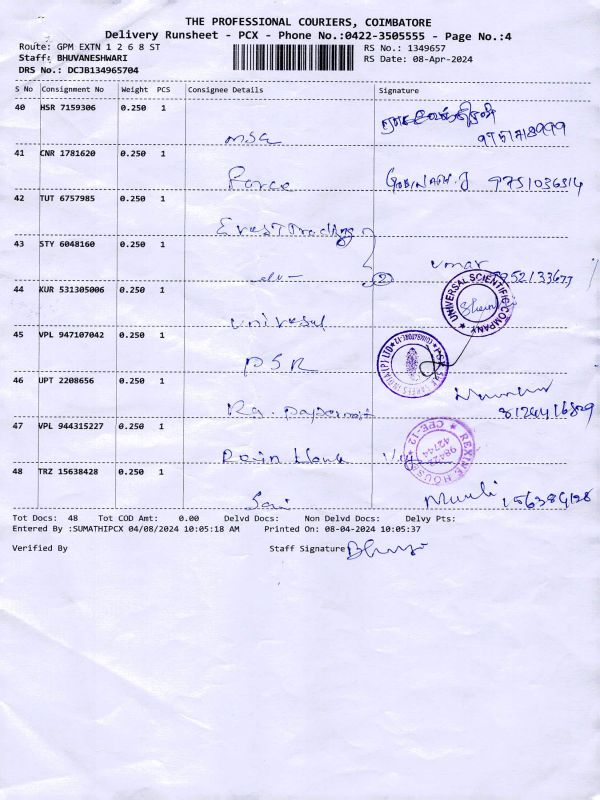 THE PROFESSIONAL COURIERS, COIMBATORE
Delivery Runsheet - PCX - Phone No.:0422-3505555 - Page No.:4
Route: GPM EXTN 1 2 6 8 ST RS No.: 1349657
Staff: BHUVANESHWARI RS Date: 08-Apr-2024
DRS No.: DCJB134965704
S No Consignment No Weight PCS Consignee Details Signature
40 HSR 7159306 0.250 1
9751718999
msc
41 CNR 1781620 0.250 1
Force GOBINATH.J 9751036314
42 TUT 6757985 0.250 1
Evest Trading
43 STY 6048160 0.250 1
umar
-do- 2
44 KUR 531305006 0.250 1
UNIVERSAL SCIENTIFIC COMPANY
Universal
45 VPL 947107042 0.250 1
PSR
46 UPT 2208656 0.250 1
8124416809
47 VPL 944315227 0.250 1
REXINE HOUSE CBE-12
48 TRZ 15638428 0.250 1
Sai Murli 15638428
Tot Docs: 48 Tot COD Amt: 0.00 Delvd Docs: Non Delvd Docs: Delvy Pts:
Entered By :SUMATHIPCX 04/08/2024 10:05:18 AM Printed On: 08-04-2024 10:05:37
Verified By Staff Signature